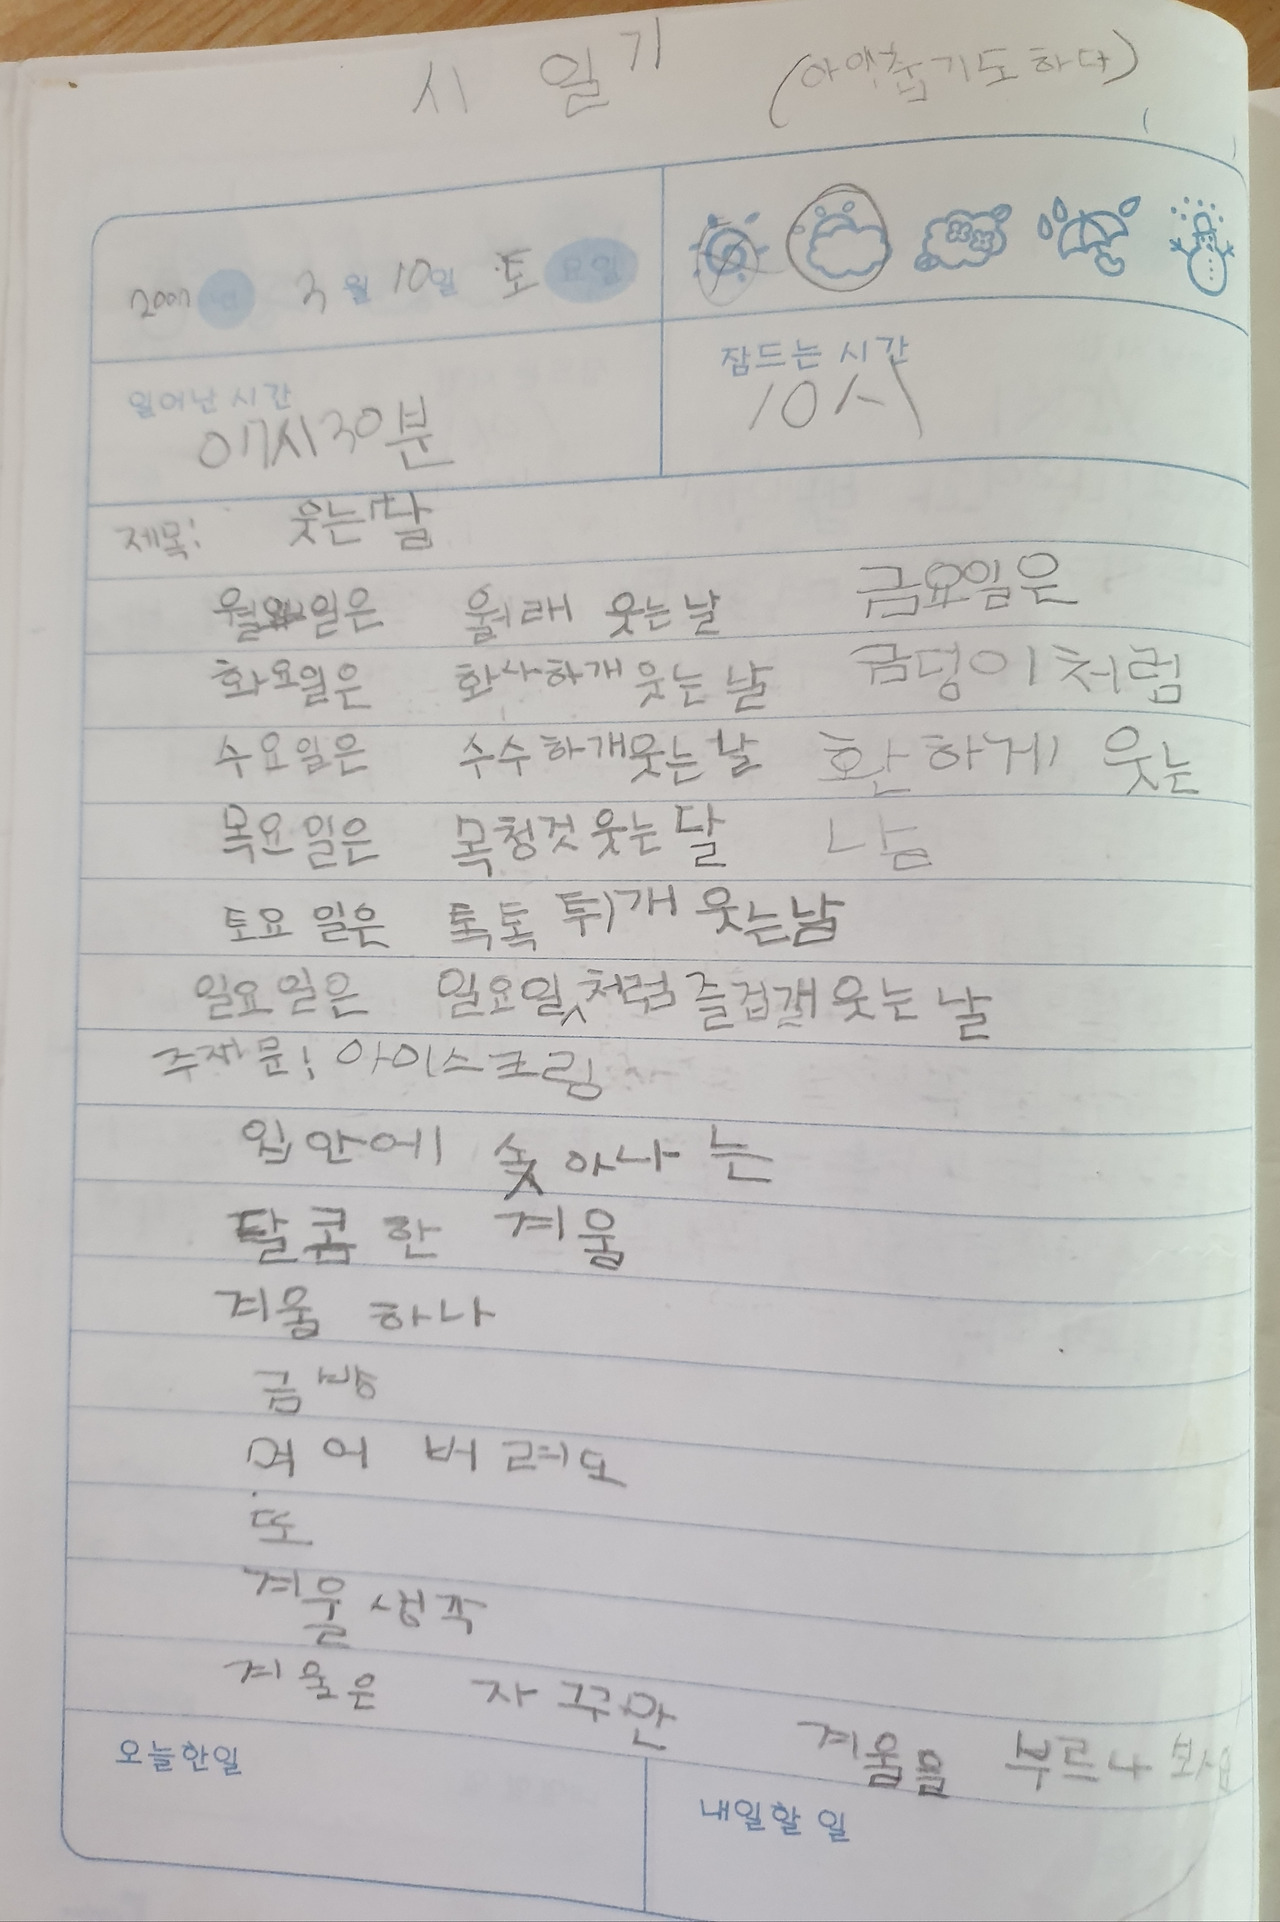 시 일기 (아얘춥기도하다)
2007년 3월 10일 토요일
일어난 시간
07시30분
잠드는 시간
10시
제목: 웃는 달
월요일은 월래 웃는 날
화요일은 화사하개 웃는 날
수요일은 수수하개 웃는 날
목요일은 목청것 웃는 달
금요일은
금덩이처럼
환하게 웃는
남
토요일은 톡톡 튀개 웃는 남
일요일은 일요일처럼 즐겁개 웃는 날
주재문: 아이스크림
입안에 솣아나는
달콤한 계울
계울 하나
금방
먹어 버려도
또
계울생각
계울은 자꾸만 계울을 부르나
오늘한일
내일할 일